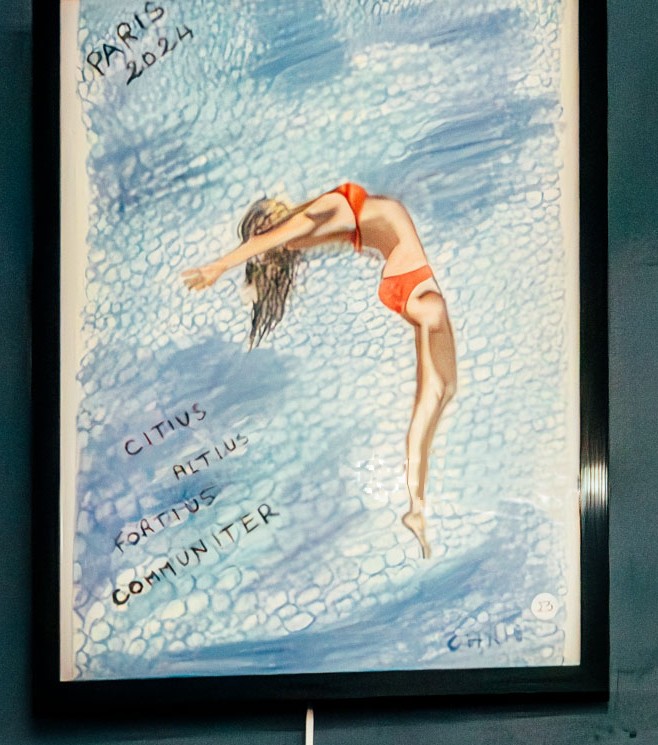 PARIS
2024
CITIUS
ALTIUS
FORTIUS
COMMUNITER